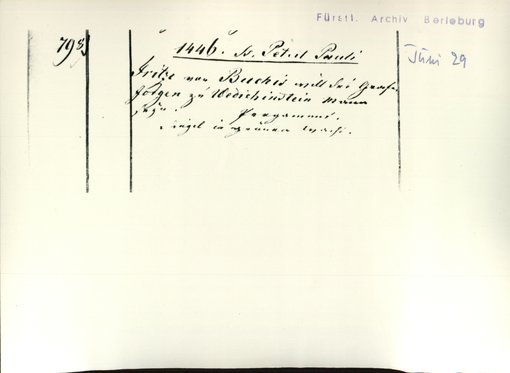 Fürstl. Archiv Berleburg
798
1446. Ss. Petri et Pauli
Juni 29
Fritze von will des Grafen
Jörgen zu Mann
seyn. Pergament.
Siegel in grünem Wachs.